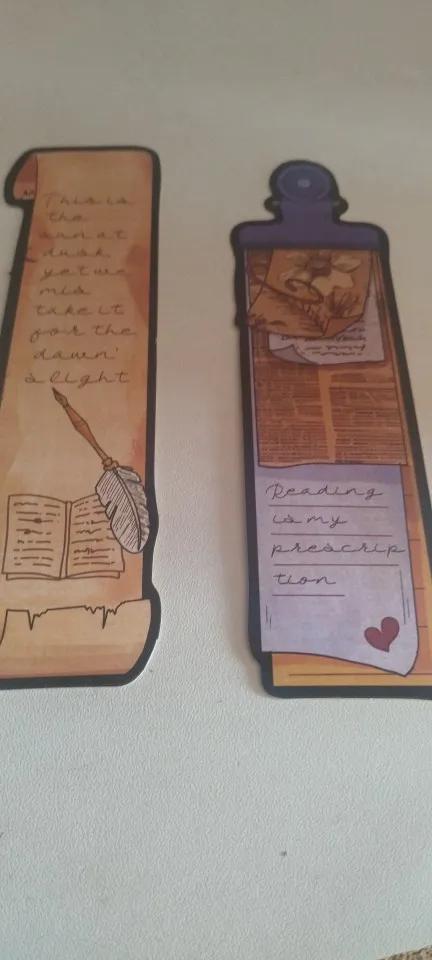 This is
the
sun at
dusk
yet we
mis
take it
for the
dawn'
s light
Reading
is my
prescrip
tion